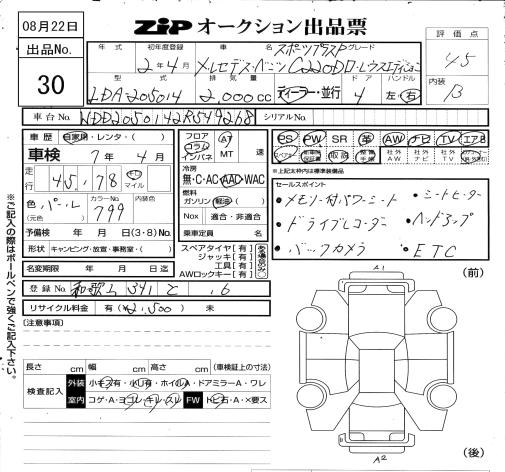 08月22日
ZiP オークション出品票
出品No.
30
評価点
4.5
内装
B
年式
初年度登録
車名
グレード
2年4月
メルセデス・ベンツ C220D ローレウスエディション スポーツプラスP
型式
排気量
ドア
ハンドル
LDA-205014
2,000cc
ディーラー・並行
4
左・右
車台No.
WDD2050142R549268
シリアルNo.
車歴
自家用・レンタ・( )
車検
7年4月
走行
45,178
Km
マイル
色
パール
(元色)
カラーNo.
799
内装色
予備検
年 月 日(3・8)No.
形状
キャンピング・放宣・事務室・( )
名変期限
年 月 日迄
登録No.
和歌山 341 と .6
リサイクル料金
有(¥21,500) 未
フロア
コラム
インパネ
AT
MT
速
冷房
無・C・AC・AAC・WAC
燃料
ガソリン・軽油( )
Nox
適合・非適合
乗車定員
名
スペアタイヤ[有]
ジャッキ[有]
工具[有]
AWロックキー[有]
PS PW SR 革 AW ナビ TV エアB
取説
社外AW
社外ナビ
社外TV
*上記太枠内は標準装備品
セールスポイント
・メモリー付パワーシート
・シートヒーター
・ドライブレコーダー
・ヘッドアップ
・バックカメラ
・ETC
(注意事項)
長さ cm 幅 cm 高さ cm (車検証上の寸法)
検査記入
外装
小キズ有・小凹有・ホイルA・ドアミラーA・ワレ
室内
コゲ・A・ヨゴレ・キレ・スレ
FW
トビ石・A・X要ス
※ご記入の際はボールペンで強くご記入下さい。
(前)
A1
A2
(後)